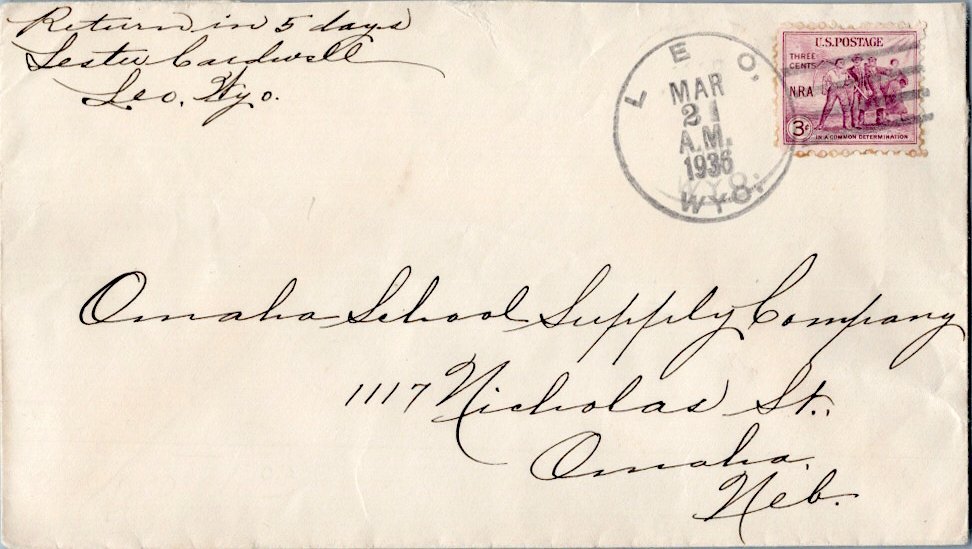 Return in 5 days
Lester Cardwell
Leo, Wyo.
LEO,
MAR
21
A.M.
1936
WYO.
U.S. POSTAGE
THREE
CENTS
NRA
3¢
IN A COMMON DETERMINATION
Omaha School Supply Company
1117 Nicholas St.,
Omaha,
Neb.